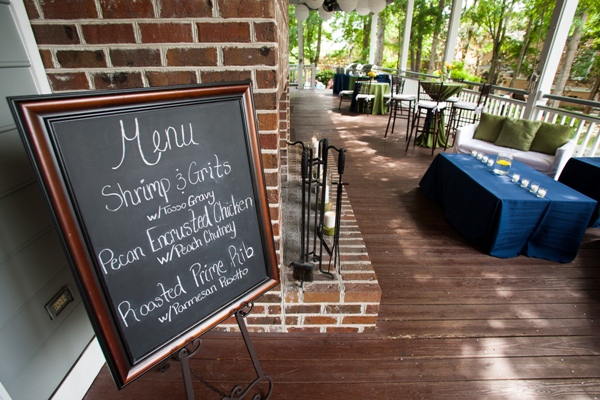 Menu
Shrimp & Grits
w/Tasso Gravy
Pecan Encrusted Chicken
w/Peach Chutney
Roasted Prime Rib
w/Parmesan Risotto